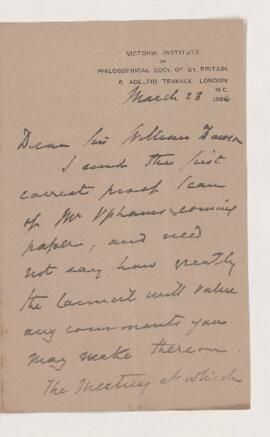 VICTORIA INSTITUTE
OR
PHILOSOPHICAL SOCY. OF GT. BRITAIN,
8, ADELPHI TERRACE, LONDON,
W.C.
March 28 1894
Dear Sir William Dawson
I send the first
correct proof I can
of Mr Upham's coming
paper, and need
not say how greatly
the Council will value
any comments you
may make thereon.
The Meeting at which